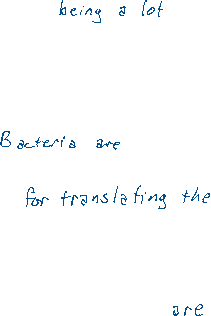 being a lot
Bacteria are
for translating the
are